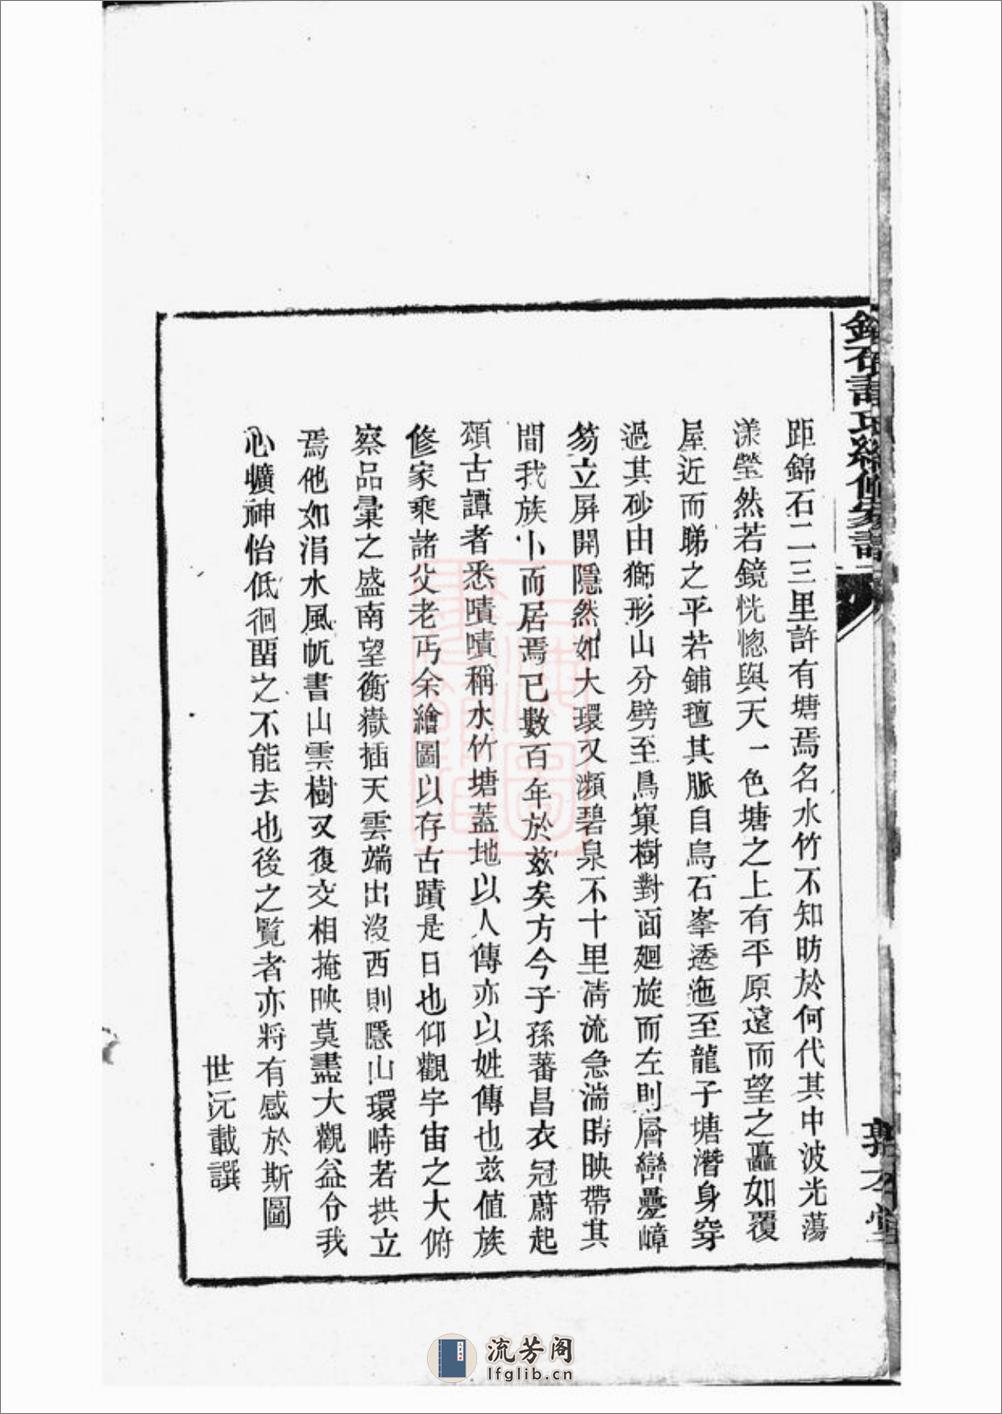 距錦石二三里許有塘焉名水竹不知昉於何代其中波光蕩
漾瑩然若鏡恍惚與天一色塘之上有平原遠而望之矗如覆
屋近而睇之平若鋪氊其脈自烏石峯透迤至龍子塘潛身穿
過其砂由獅形山分劈至鳥窠樹對面廻旋而左則層巒疊嶂
笏立屏開隱然如大環又瀕碧泉不十里清流急湍時映帶其
間我族卜而居焉已數百年於兹矣方今子孫蕃昌衣冠蔚起
頌古譚者悉嘖嘖稱水竹塘蓋地以人傳亦以姓傳也兹值族
修家乘諸父老丐余繪圖以存古蹟是日也仰觀宇宙之大俯
察品彙之盛南望衡嶽插天雲端出沒西則隱山環峙若拱立
焉他如涓水風帆書山雲樹又復交相掩映莫盡大觀益令我
心曠神怡低徊畱之不能去也後之覽者亦將有感於斯圖
世沅載譔
流芳阁
lfglib.cn